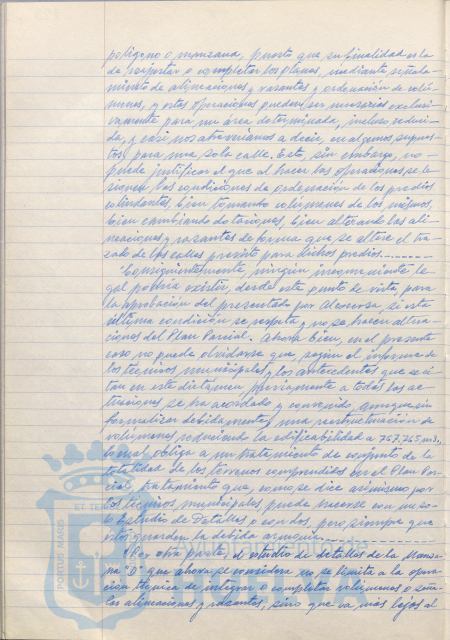 polígono o manzana, puesto que su finalidad es la
de reajustar o completar los planes, mediante señala-
miento de alineaciones y rasantes y ordenación de volú-
menes, y estas operaciones pueden ser necesarias exclusi-
vamente para un área determinada, incluso reduci-
da, y casi nos atreveríamos a decir, en algunos supues-
tos, para una sola calle. Esto, sin embargo, no
puede justificar el que al hacer las operaciones se le-
sionen las condiciones de ordenación de los predios
colindantes, bien tomando volúmenes de los mismos,
bien cambiando de bloques, bien alterando las ali-
neaciones y rasantes de forma que se altere el tra-
zado de las calles previsto para dichos predios.
"Consiguientemente, ningún inconveniente le-
gal podría existir, desde este punto de vista, para
la aprobación del presentado por si esta
última condición se respeta y no se hacen altera-
ciones del Plan Parcial. Ahora bien, en el presente
caso no puede olvidarse que, según el informe de
los técnicos municipales y los antecedentes que se ci-
tan en este dictamen, previamente a todas las ac-
tuaciones se ha acordado y convenido, aunque sin
formalizar debidamente, una reestructuración de
volúmenes, reduciendo la edificabilidad a 757.765 m3.,
lo cual obliga a un tratamiento de conjunto de la
totalidad de los terrenos comprendidos en el Plan Par-
cial, tratamiento que, como se dice asimismo por
los técnicos municipales, puede hacerse con un so-
lo Estudio de Detalles o con dos, pero siempre que
estos guarden la debida armonía.
"Por otra parte, el estudio de detalles de la Manza-
na "D" que ahora se considera no se limita a la opera-
ción técnica de integrar o completar volúmenes o seña-
lar alineaciones y rasantes, sino que va más lejos al
PORTUS MARIS
ET TERRAE